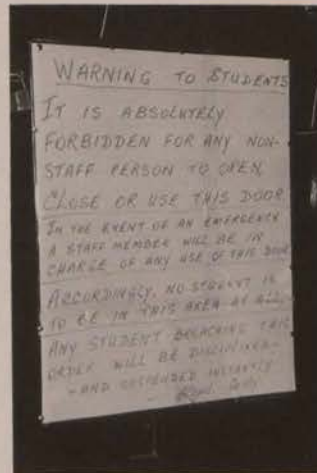 WARNING TO STUDENTS
IT IS ABSOLUTELY
FORBIDDEN FOR ANY NON-
STAFF PERSON TO OPEN,
CLOSE OR USE THIS DOOR
IN THE EVENT OF AN EMERGENCY
A STAFF MEMBER WILL BE IN
CHARGE OF ANY USE OF THIS DOOR
ACCORDINGLY, NO STUDENT IS
TO BE IN THIS AREA AT ALL.
ANY STUDENT BREACHING THIS
ORDER WILL BE DISCIPLINED-
-AND SUSPENDED INSTANTLY